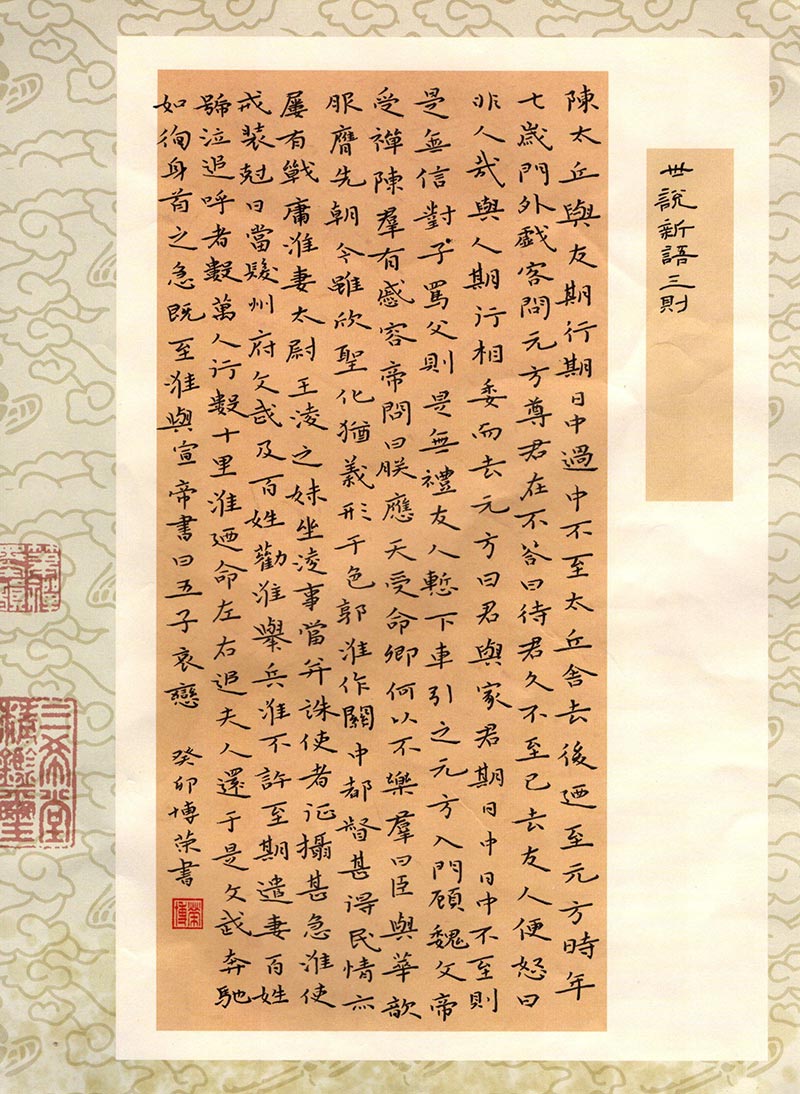 世說新語三則
陳太丘與友期行期日中過中不至太丘舍去後迺至元方時年
七歲門外戲客問元方尊君在不荅曰待君久不至已去友人便怒曰
非人哉與人期行相委而去元方曰君與家君期日中日中不至則
是無信對子罵父則是無禮友人慙下車引之元方入門不顧魏文帝
受禪陳羣有慼容帝問曰朕應天受命卿何以不樂羣曰臣與華歆
服膺先朝今雖欣聖化猶義形于色郭淮作關中都督甚得民情亦
屢有戰庸淮妻太尉王淩之妹坐淩事當并誅使者徵攝甚急淮使
戒裝尅日當發州府文武及百姓勸淮舉兵淮不許至期遣妻百姓
號泣追呼者數萬人行數十里淮迺命左右追夫人還于是文武奔馳
如徇身首之急既至淮與宣帝書曰五子哀戀
癸卯博榮書
三希堂
精鑑璽